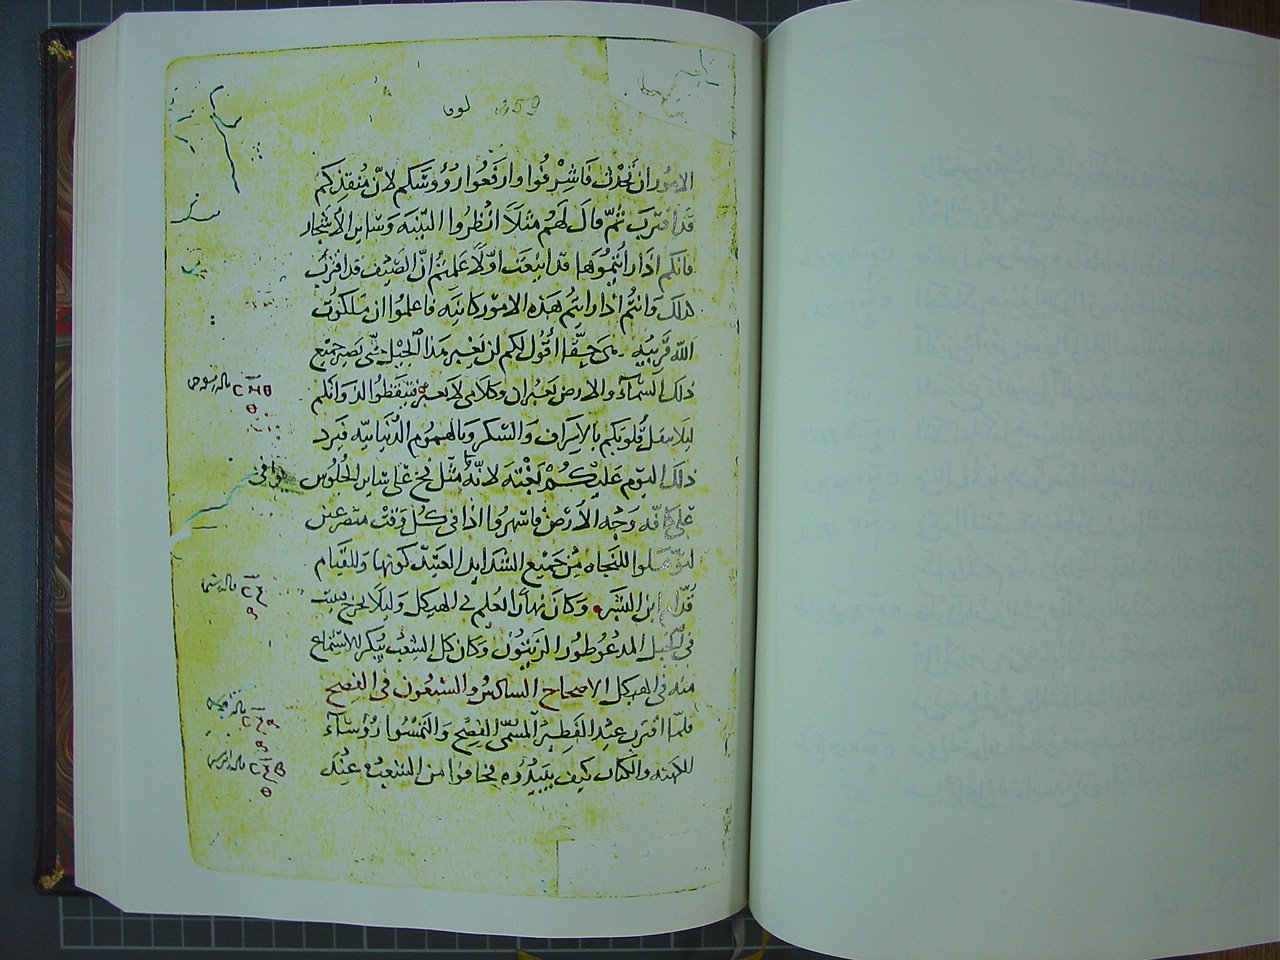 لوق 659
الامور ان تحدث فاشرفوا وارفعوا رؤوسكم لان منقذكم
قد اقترب ثم قال لهم مثلا انظروا التينه وساير الاشجار
فانكم اذا رأيتموها قد اينعت اولا علمتم ان الصيف قد اقترب
كذلك وانتم اذا رايتم هذه الامور كاينه فاعلموا ان ملكوت
الله قريبه حقا اقول لكم لن يعبر هذا الجيل حتى يصير جميع
ذلك السمآء والارض تعبران وكلامي لا يعبر تيقظوا لذواتكم
ليلا تثقل قلوبكم بالاسراف والسكر وبالهموم الدنيانيه فيرد
ذلك اليوم عليكم بغته لانه مثل فخ على ساير الجلوس
يوافي
على كافه وجه الأرض فاسهروا اذا في كل وقت متضرعين
لتؤهلوا للنجاه من جميع الشدايد العتيد كونها وللقيام
قدام ابن البشر وكان نهارا يعلم في الهيكل وليلا يخرج يبيت
في الجبل المدعو طور الزيتون وكان كل الشعب يبكر للاستماع
منه في الهيكل الاصحاح السادس والسبعون في الفصح
فلما اقترب عيد الفطير المسمى الفصح والتمسوا رؤسآء
الكهنه والكتاب كيف يبيدوه فخافوا من الشعب عند